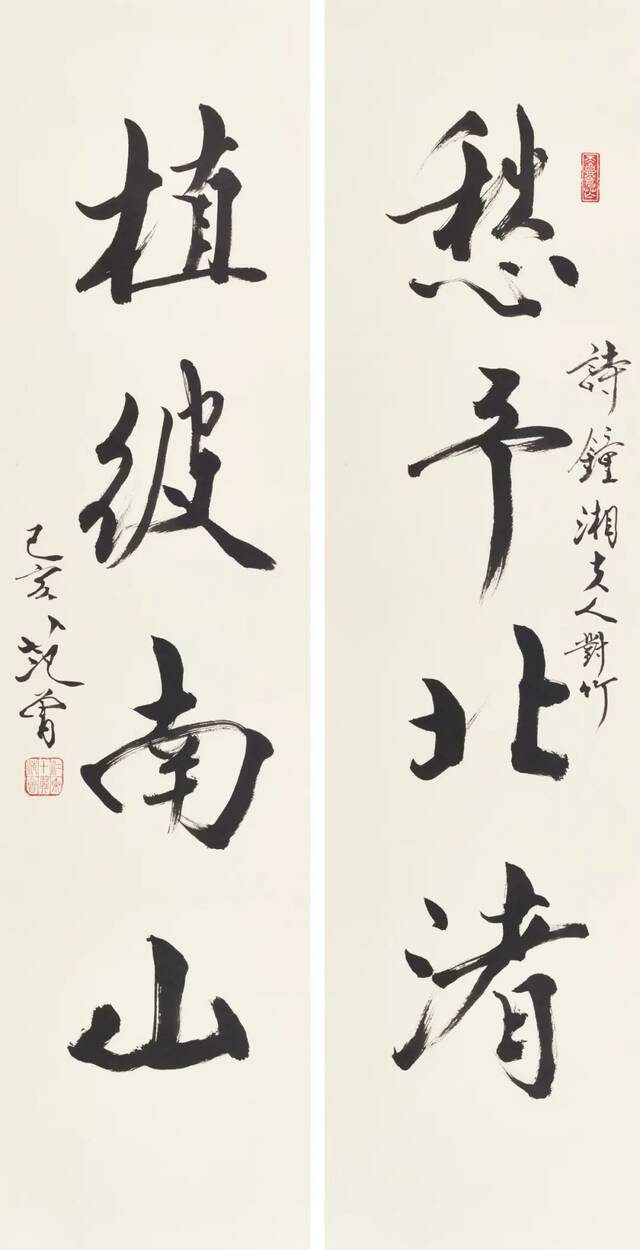 愁予北渚
詩鐘湘夫人對竹
植彼南山
己亥范曾